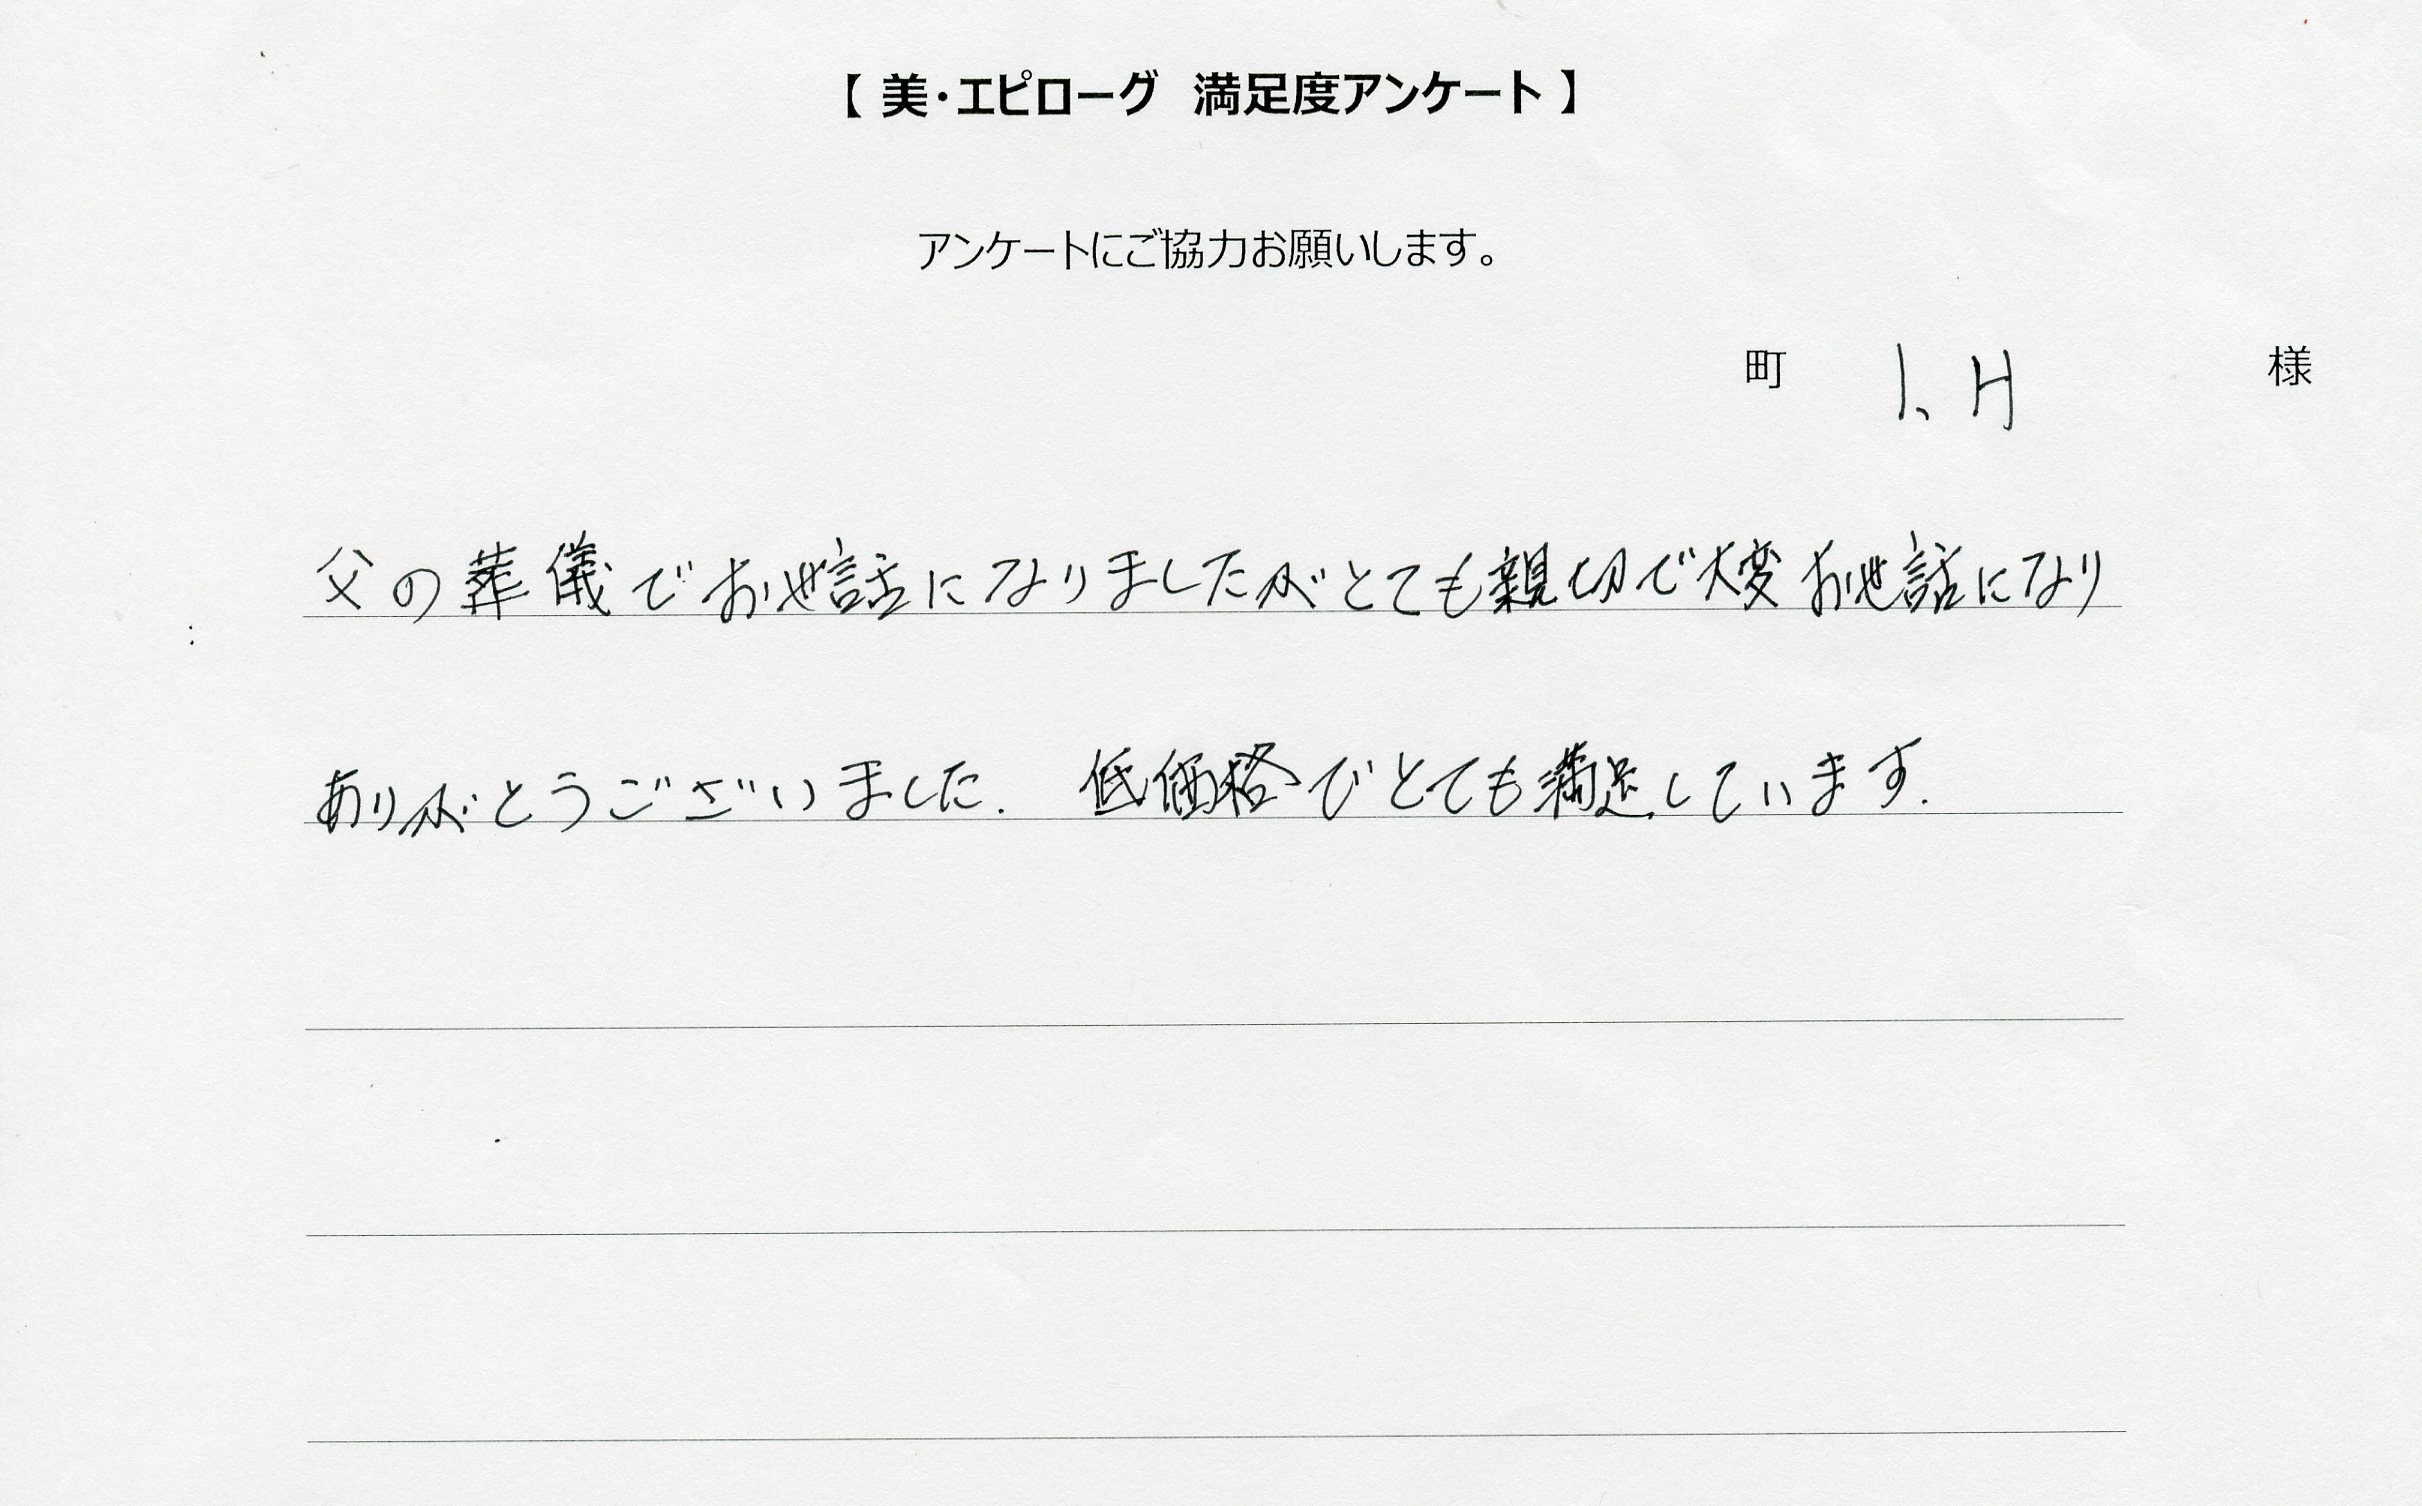 【 美・エピローグ 満足度アンケート 】
アンケートにご協力お願いします。
町 I、H 様
父の葬儀でお世話になりましたがとても親切で大変お世話になり
ありがとうございました. 低価格でとても満足しています.